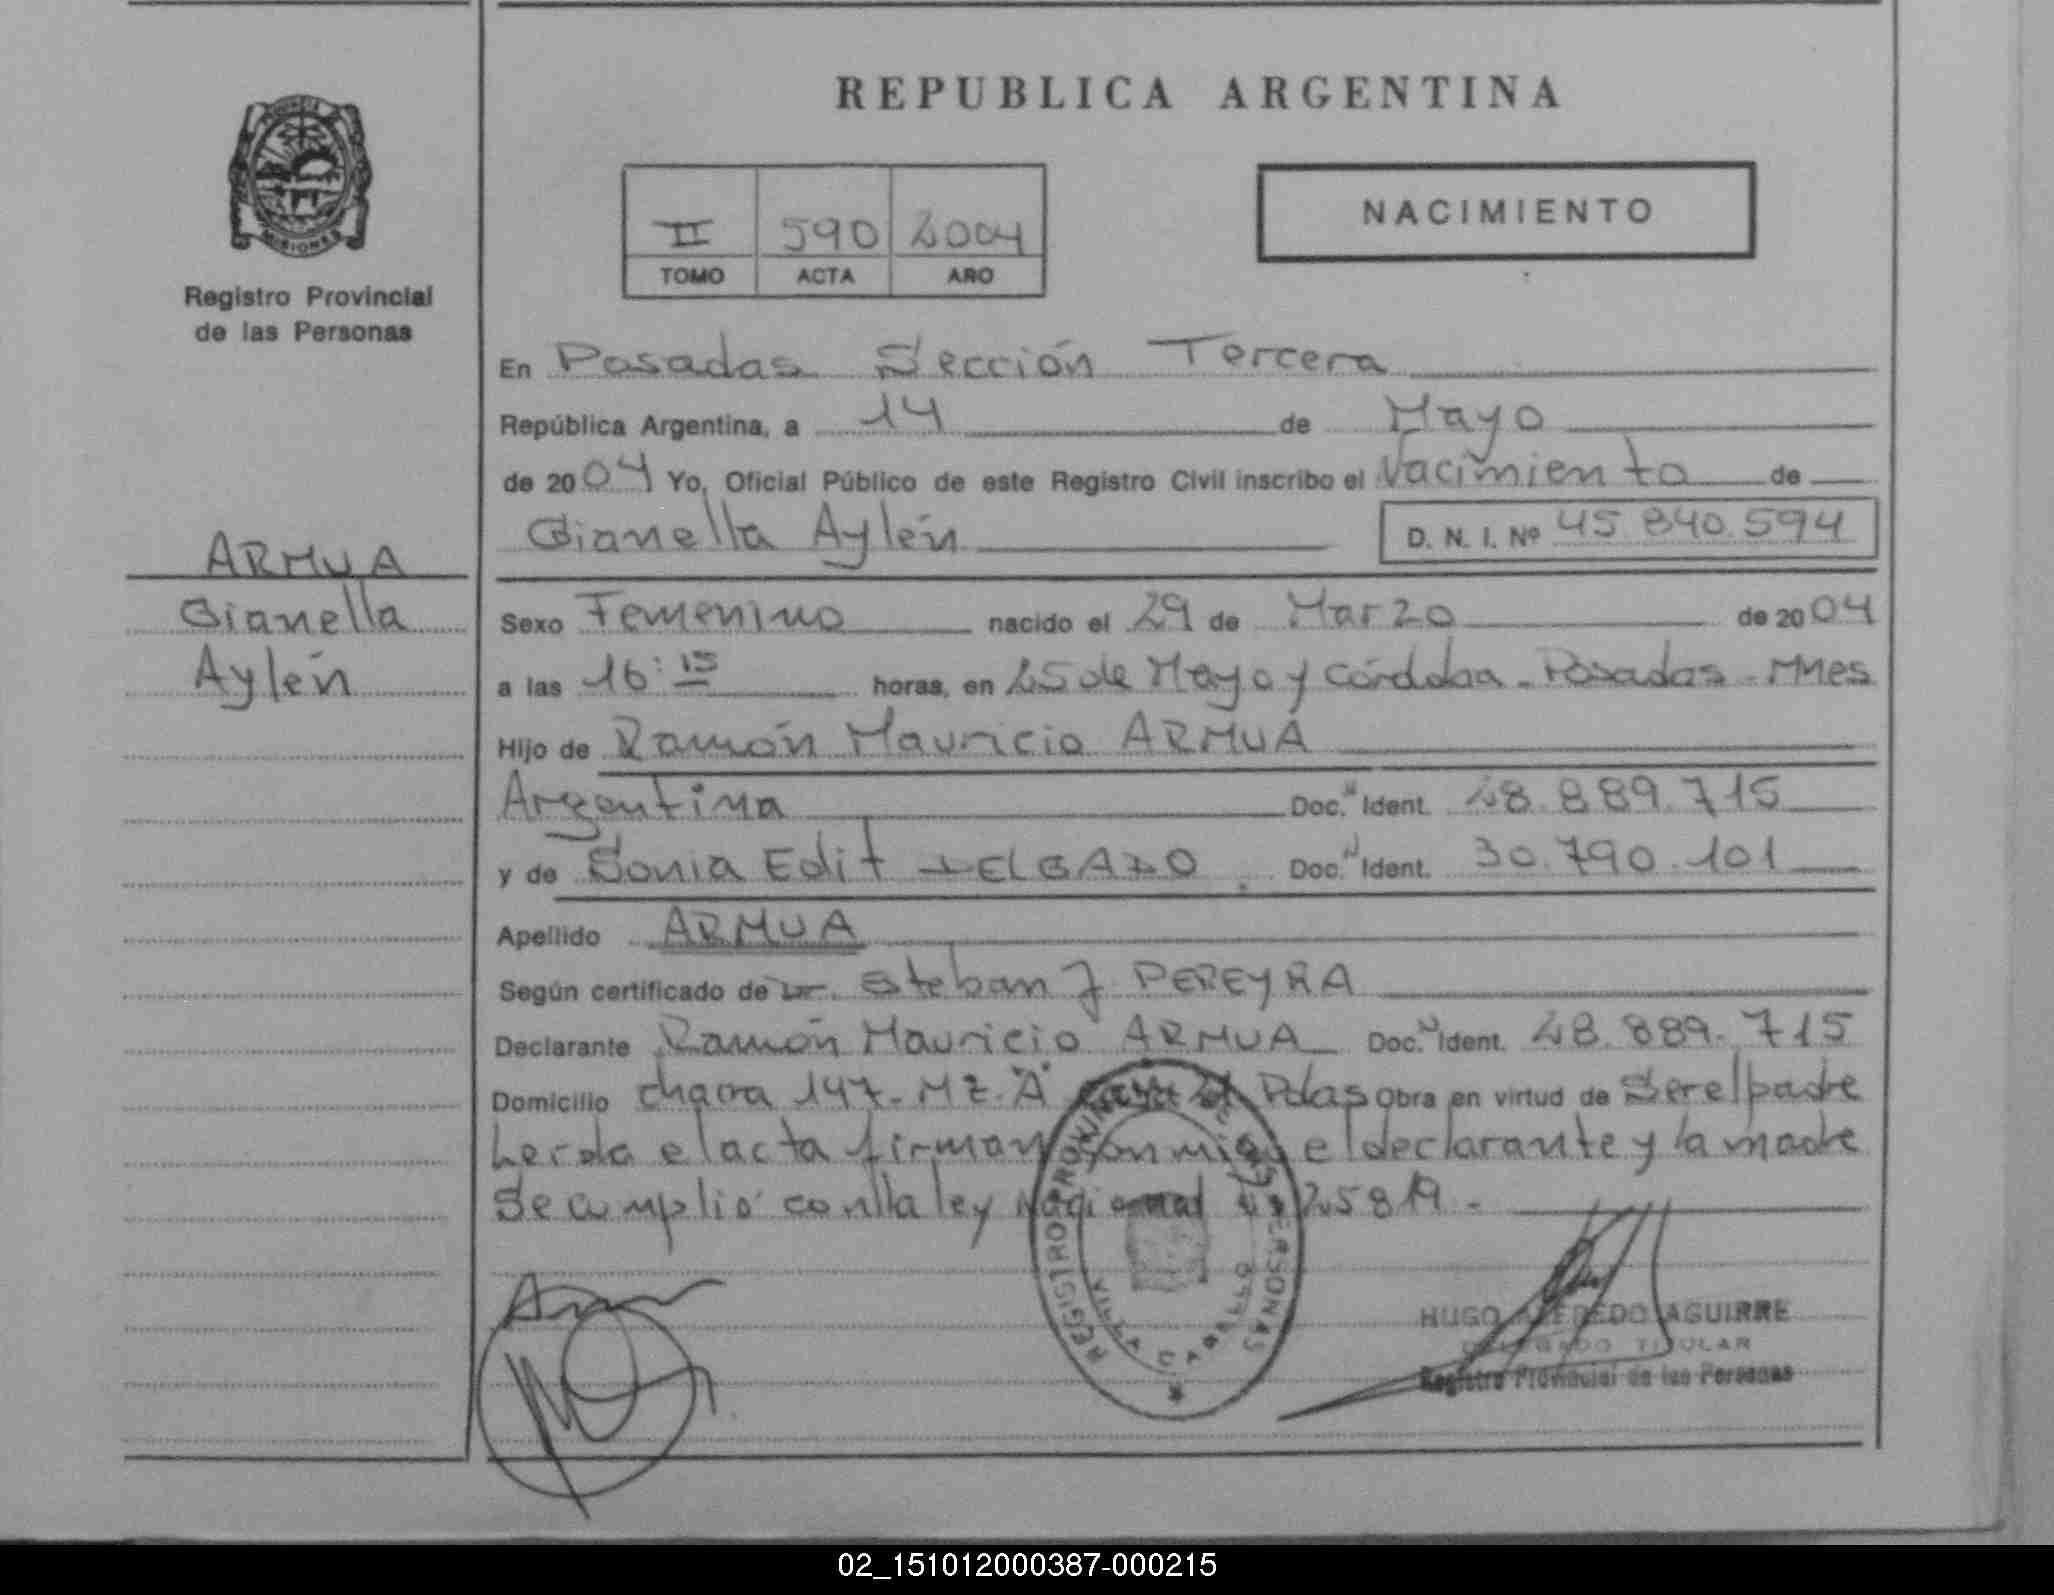 REPUBLICA ARGENTINA
MISIONES
Registro Provincial
de las Personas
II 590 2004
TOMO ACTA AÑO
NACIMIENTO
En Posadas Sección Tercera
República Argentina, a 14 de Mayo
de 2004 Yo, Oficial Público de este Registro Civil inscribo el Nacimiento de
Gianella Aylén D. N. I. Nº 45.840.594
ARMUA
Gianella
Aylén
Sexo Femenino nacido el 29 de Marzo de 2004
a las 16:15 horas, en 25 de Mayo y Córdoba - Posadas - Mnes
Hijo de Ramón Mauricio ARMUA
Argentina Doc. N Ident. 28.889.715
y de Sonia Edit DELGADO, Doc. N Ident. 30.790.101
Apellido ARMUA
Según certificado de Dr. Esteban J. PEREYRA
Declarante Ramón Mauricio ARMUA Doc. N Ident. 28.889.715
Domicilio chacra 147 - MZ. "A" Pdas Obra en virtud de Ser el padre
Leida el acta firman conmigo el declarante y la madre
Se cumplió con la ley Nacional 25819.-
REGISTRO PROVINCIAL DE LAS PERSONAS
VILLA CABELLO
HUGO ALFREDO AGUIRRE
DELEGADO TITULAR
Registro Provincial de las Personas
02_151012000387-000215